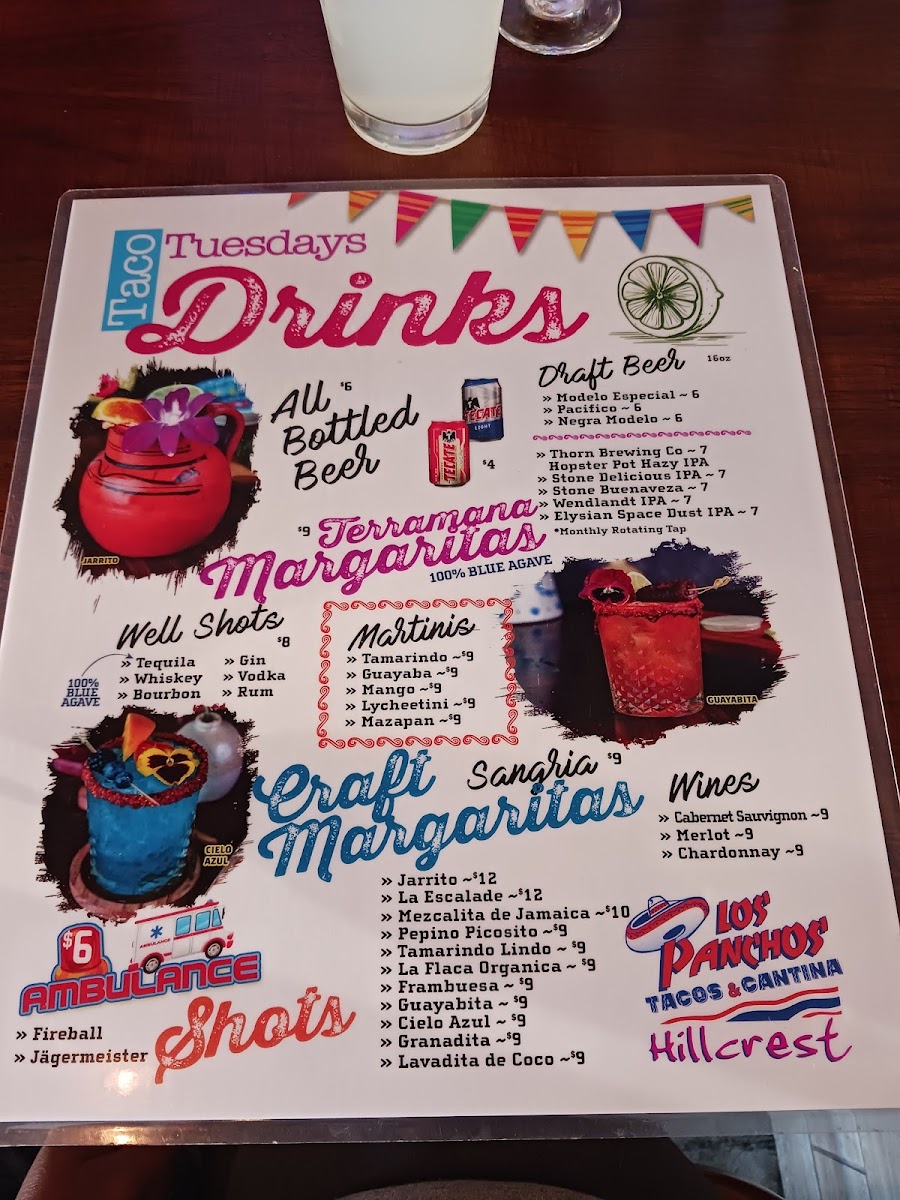 Taco Tuesdays
Drinks
All $6
Bottled
Beer
TECATE
LIGHT
TECATE
$4
Draft Beer 16oz
» Modelo Especial ~ 6
» Pacifico ~ 6
» Negra Modelo ~ 6
» Thorn Brewing Co ~ 7
Hopster Pot Hazy IPA
» Stone Delicious IPA ~ 7
» Stone Buenaveza ~ 7
» Wendlandt IPA ~ 7
» Elysian Space Dust IPA ~ 7
*Monthly Rotating Tap
JARRITO
$9 Terramana
Margaritas
100% BLUE AGAVE
Well Shots
$8
» Tequila
» Whiskey
» Bourbon
» Gin
» Vodka
» Rum
100%
BLUE
AGAVE
Martinis
» Tamarindo ~$9
» Guayaba ~$9
» Mango ~$9
» Lycheetini ~$9
» Mazapan ~$9
GUAYABITA
CIELO
AZUL
Sangria $9
Wines
» Cabernet Sauvignon ~9
» Merlot ~9
» Chardonnay ~9
Craft
Margaritas
» Jarrito ~$12
» La Escalade ~$12
» Mezcalita de Jamaica ~$10
» Pepino Picosito ~$9
» Tamarindo Lindo ~ $9
» La Flaca Organica ~ $9
» Frambuesa ~ $9
» Guayabita ~ $9
» Cielo Azul ~ $9
» Granadita ~$9
» Lavadita de Coco ~$9
$6
AMBULANCE
AMBULANCE
Shots
» Fireball
» Jägermeister
LOS
PANCHOS
TACOS & CANTINA
Hillcrest